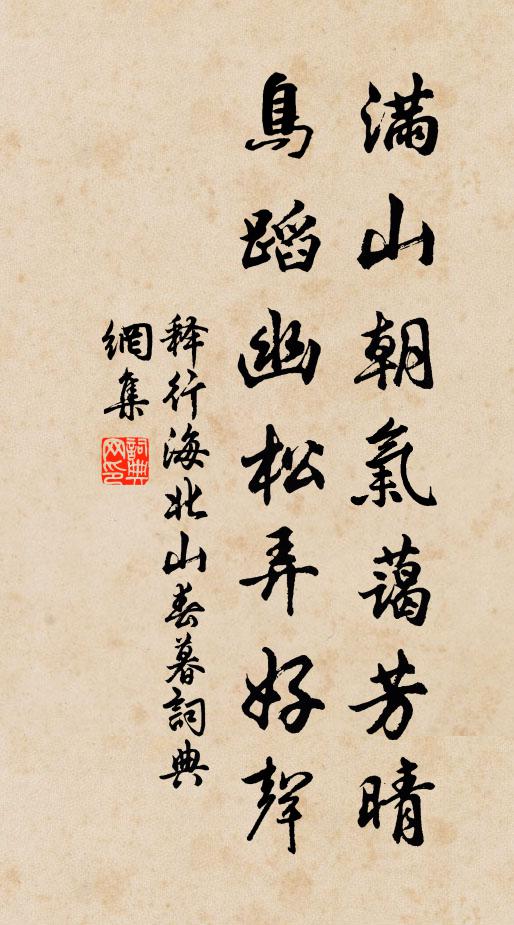 滿山朝氣藹芳晴
鳥蹈幽松弄好聲
释行海北山春暮詞典
網集
詞典
网印